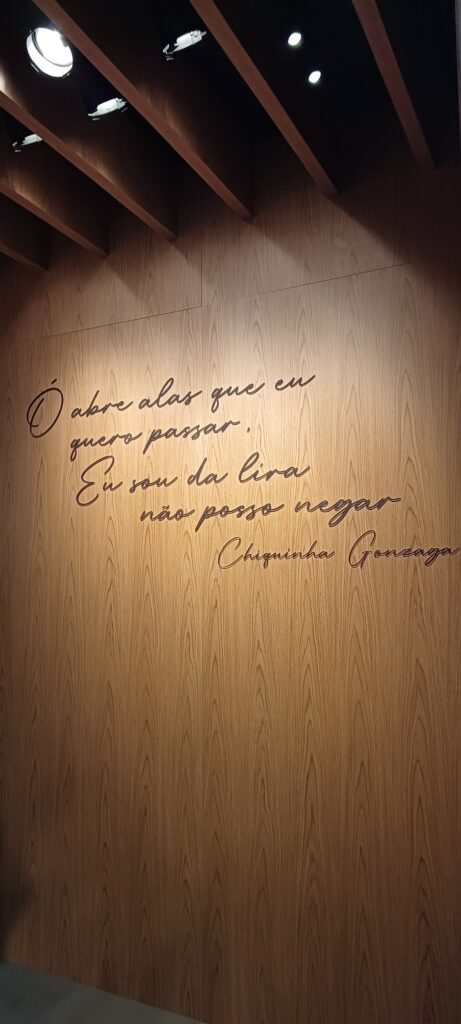 Ó abre alas que eu
quero passar,
Eu sou da lira
não posso negar
Chiquinha Gonzaga